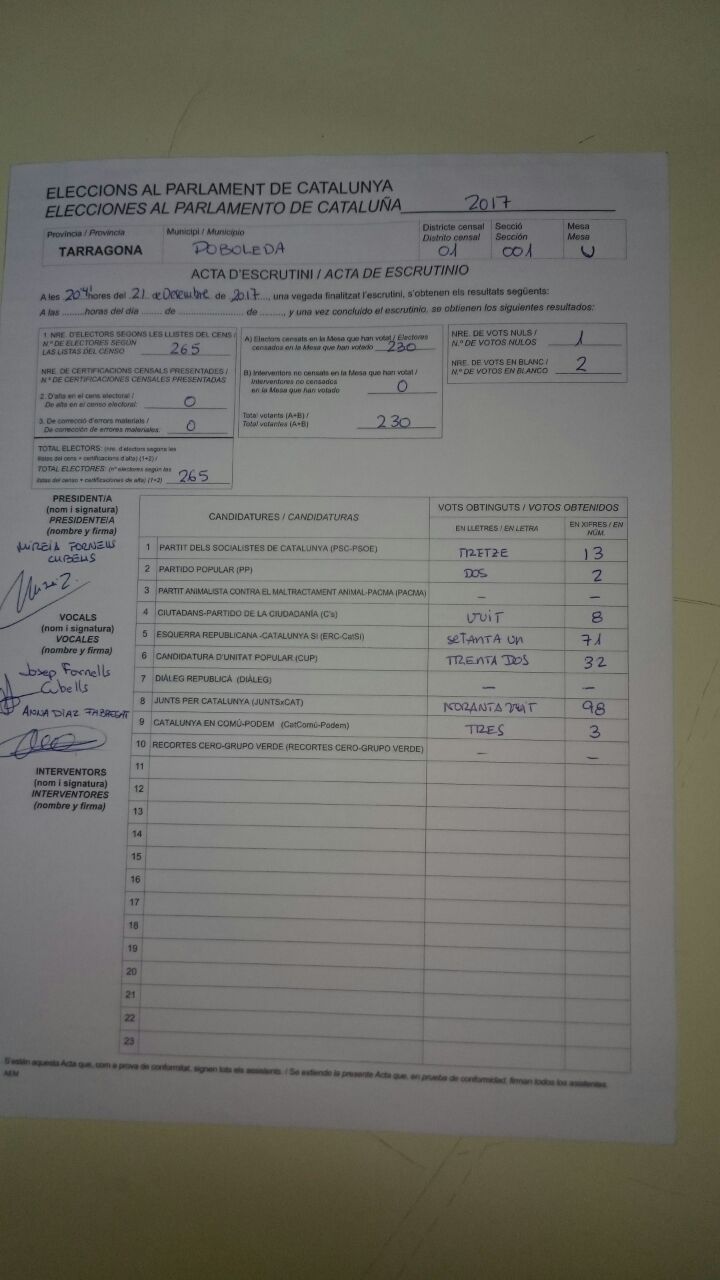 ELECCIONS AL PARLAMENT DE CATALUNYA
ELECCIONES AL PARLAMENTO DE CATALUÑA 2017
Província / Provincia
TARRAGONA
Municipi / Municipio
POBOLEDA
Districte censal
Distrito censal
01
Secció
Sección
001
Mesa
Mesa
U
ACTA D'ESCRUTINI / ACTA DE ESCRUTINIO
A les 20'41 hores del 21 de Desembre de 2017, una vegada finalitzat l'escrutini, s'obtenen els resultats següents:
A las .........horas del día ....... de ........................ de ........, y una vez concluido el escrutinio, se obtienen los siguientes resultados:
1. NRE. D'ELECTORS SEGONS LES LLISTES DEL CENS /
N.º DE ELECTORES SEGÚN
LAS LISTAS DEL CENSO 265
NRE. DE CERTIFICACIONS CENSALS PRESENTADES /
N.º DE CERTIFICACIONES CENSALES PRESENTADAS
2. D'alta en el cens electoral /
De alta en el censo electoral: 0
3. De correcció d'errors materials /
De corrección de errores materiales: 0
TOTAL ELECTORS: (nre. d'electors segons les
llistes del cens + certificacions d'alta) (1+2) /
TOTAL ELECTORES: (nº electores según las
listas del censo + certificaciones de alta) (1+2) 265
A) Electors censats en la Mesa que han votat / Electores
censados en la Mesa que han votado 230
B) Interventors no censats en la Mesa que han votat /
Interventores no censados
en la Mesa que han votado 0
Total votants (A+B) /
Total votantes (A+B) 230
NRE. DE VOTS NULS /
N.º DE VOTOS NULOS 1
NRE. DE VOTS EN BLANC /
N.º DE VOTOS EN BLANCO 2
PRESIDENT/A
(nom i signatura)
PRESIDENTE/A
(nombre y firma)
MIREIA FORNELLS
CUBELLS
VOCALS
(nom i signatura)
VOCALES
(nombre y firma)
Josep Fornells
Cubells
ANNA DÍAZ FABREGAT
INTERVENTORS
(nom i signatura)
INTERVENTORES
(nombre y firma)
CANDIDATURES / CANDIDATURAS
VOTS OBTINGUTS / VOTOS OBTENIDOS
EN LLETRES / EN LETRA
EN XIFRES / EN
NÚM.
1 PARTIT DELS SOCIALISTES DE CATALUNYA (PSC-PSOE) TRETZE 13
2 PARTIDO POPULAR (PP) DOS 2
3 PARTIT ANIMALISTA CONTRA EL MALTRACTAMENT ANIMAL-PACMA (PACMA) – –
4 CIUTADANS-PARTIDO DE LA CIUDADANÍA (C's) VUIT 8
5 ESQUERRA REPUBLICANA -CATALUNYA SI (ERC-CatSí) SETANTA UN 71
6 CANDIDATURA D'UNITAT POPULAR (CUP) TRENTA DOS 32
7 DIÀLEG REPUBLICÀ (DIÀLEG) – –
8 JUNTS PER CATALUNYA (JUNTSxCAT) NORANTA VUIT 98
9 CATALUNYA EN COMÚ-PODEM (CatComú-Podem) TRES 3
10 RECORTES CERO-GRUPO VERDE (RECORTES CERO-GRUPO VERDE) – –
11
12
13
14
15
16
17
18
19
20
21
22
23
S'estén aquesta Acta que, com a prova de conformitat, signen tots els assistents. / Se extiende la presente Acta que, en prueba de conformidad, firman todos los asistentes.
AEM